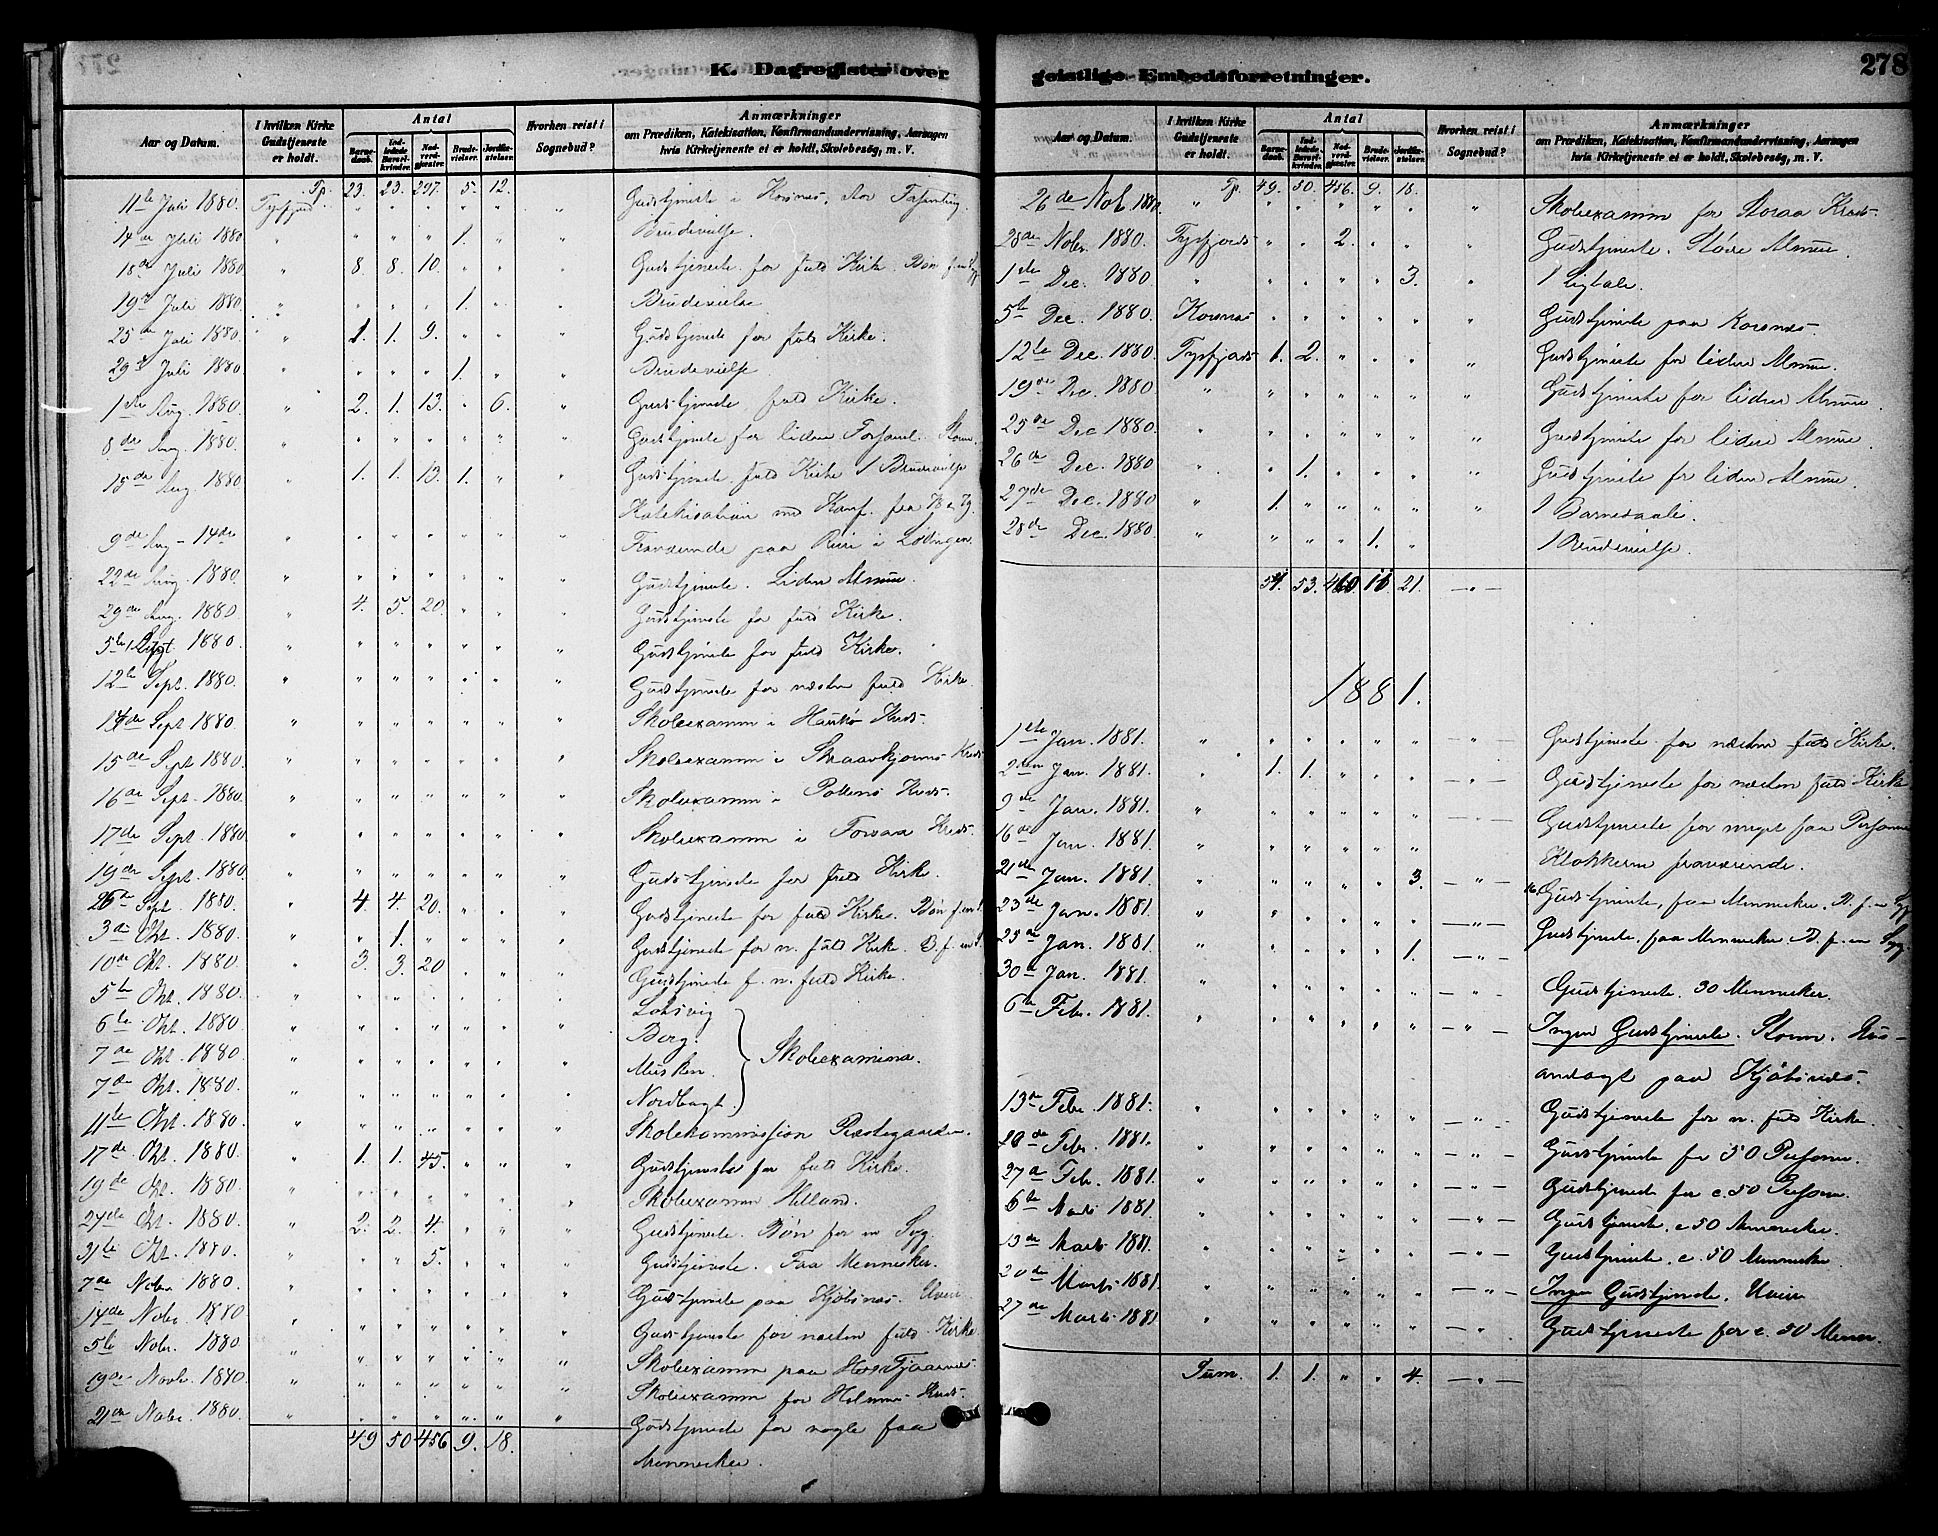 K. Dagregister over
Aar og Datum. I hvilken Kirke Gudstjeneste er holdt. Antal Barnedaab. Indledede Barselkvinder. Nadverdgjester. Brudevielser. Jordfæstelser. Hvorhen reist i Sognebud? Anmærkninger om Prædiken, Katekisation, Konfirmandundervisning, Aarsagen hvis Kirketjeneste ei er holdt, Skolebesøg, m. V.
Tp. 23. 23. 297. 5. 12.
11te Juli 1880. Tysfjord " " " " " " Gudstjeneste i Korsnæs, stor Forsamling.
14de Juli 1880 " " " " 1. " " Brudevielse.
18de Juli 1880 " 8. 8. 10. " " " Gudstjeneste for fuld Kirke. Bøn f. en Syg
19de Juli 1880. " " " " 1. " " Brudevielse
25de Juli 1880. " 1. 1. 9. " " " Gudstjeneste for fuld Kirke.
29de Juli 1880 " " " " 1. " " Brudevielse
1ste Aug. 1880. " 2. 1. 13. " 6. " Gudstjeneste fuld Kirke.
8de Aug. 1880. " " " " " " " Gudstjeneste for liden Forsaml. Storm.
15de Aug. 1880 " 1. 1. 13. 1. " " Gudstjeneste fuld Kirke 1 Brudevielse
Katekisation med Konf.
9de Aug - 14de " " " " " " " Fraværende paa Reise i Lødingen
22de Aug. 1880. " " " " " " " Gudstjeneste. Liden Almue.
29de Aug. 1880. " 4. 5. 20. " " " Gudstjeneste for fuld Kirke.
5te Sept 1880. " " " " " " " Gudstjeneste for fuld Kirke.
12te Sept. 1880. " " " " " " " Gudstjeneste for næsten fuld Kirke.
14de Sept 1880. " " " " " " " Skoleexamen i Haukø Kreds.
15de Sept 1880. " " " " " " " Skoleexamen i Skaarvkjosens Kreds
16de Sept. 1880. " " " " " " " Skoleexamen i Pollens Kreds.
17de Sept. 1880 " " " " " " " Skoleexamen i Forsaa Kreds.
19de Sept. 1880 " " " " " " " Gudstjeneste for fuld Kirke.
26de Sept. 1880. " 4. 4. 20. " " " Gudstjeneste for fuld Kirke. Bøn f. en S.
3de Okt. 1880. " " 1. " " " " Gudstjeneste for n. fuld Kirke. B. f. en S.
10de Okt. 1880 " 3. 3. 20 " " " Gudstjeneste f. n. fuld Kirke.
5te Okt. 1880 " " " " " " "
6te Okt. 1880. " " " " " " " Borg.
7de Okt. 1880 " " " " " " " Musken. Skoleexamina.
7de Okt. 1880 " " " " " " " Nordbugt.
11te Okt. 1880. " " " " " " " Skolekommission Præstegaarden.
17de Okt. 1880. " 1. 1. 45. " " " Gudstjeneste for fuld Kirke.
19de Okt. 1880 " " " " " " " Skoleexamen Helland.
24de Okt. 1880 " 2. 2. 4. " " " Gudstjeneste. Bøn for en Syg.
31te Okt. 1880. " " " 5. " " " Gudstjeneste. Faa Mennesker.
7de Nobr. 1880. " " " " " " " Gudstjeneste paa Kjøbsnæs. Uveir
14de Nobr. 1880 " " " " " " " Gudstjeneste for næsten fuld Kirke.
5te Nobr. 1880 " " " " " " " Skoleexamen paa
19de Novbr. 1880 " " " " " " " Skoleexamen for Kreds.
21de Nobr. 1880. " " " " " " " Gudstjeneste for nogle faa
49 50 456 9. 18. Mennesker.
geistlige Embedsforretninger. 278
Aar og Datum. I hvilken Kirke Gudstjeneste er holdt. Antal Barnedaab. Indledede Barselkvinder. Nadverdgjester. Brudevielser. Jordfæstelser. Hvorhen reist i Sognebud? Anmærkninger om Prædiken, Katekisation, Konfirmandundervisning, Aarsagen hvis Kirketjeneste ei er holdt, Skolebesøg, m. V.
Tp. 49. 50. 456. 9. 18.
26de Nob. 1880. " " " " " " " Skoleexamen for Storaa Kreds.
28de Nobr. 1880. Tysfjord " " 2. " " " Gudstjeneste. Større Almue.
1ste Dec. 1880. " " " " " 3. " 1 Ligtale.
5te Dec. 1880. Korsnæs " " " " " " Gudstjeneste paa Korsnæs.
12te Dec. 1880. Tysfjord 1. 2. " " " " Gudstjeneste for liden Almue.
19de Dec. 1880 " " " " " " " Gudstjeneste for liden Almue.
25de Dec 1880. " " " " " " " Gudstjeneste for liden Almue.
26de Dec. 1880 " " 1. " " " " Gudstjeneste for liden Almue.
27de Dec. 1880 " 1. " " " " " 1 Barnedaab.
28de Dec. 1880. " " " " 1. " 1 Brudevielse.
51. 53. 460 10 21. — " —
1881.
1ste Jan. 1881. " " " " " " — " — Gudstjeneste for næsten fuld Kirke.
2den Jan. 1881. " 1. 1. " " " — " — Gudstjeneste for næsten fuld Kirke
9de Jan. 1881. " " " " " " — " — Gudstjeneste for meget faa Personer
16de Jan. 1881. " " " " " " Klokkeren fraværende.
21de Jan. 1881. " " " " " 3. — " — 16. Gudstjeneste, faa Mennesker. B. f. en Syg
23de Jan. 1881. " " " " " " — " — Gudstjeneste, faa Mennesker B. f. en Syg
25de Jan. 1881 " " " " " 1. — " —
30de Jan. 1881 " " " " " " — " — Gudstjeneste. 30 Mennesker.
6te Febr. 1881. " " " " " " — " — Ingen Gudstjeneste. Storm. Hus-
andagt paa Kjøbsnæs.
13de Febr. 1881. " " " " " " — " — Gudstjeneste for n. fuld Kirke.
20de Febr. 1881. " " " " " " — " — Gudstjeneste for 50 Personer.
27de Febr. 1881. " " " " " " — " — Gudstjeneste for c. 50 Personer.
6te Marts 1881. " " " " " " — " — Gudstjeneste. c 50 Mennesker.
13de Marts 1881. " " " " " " — " — Gudstjeneste. c. 50 Mennesker.
20de Marts 1881. " " " " " " — " — Ingen Gudstjeneste. Uveir
27de Marts 1881 " " " " " " " Gudstjeneste for c. 50 Menn.
Sum. 1. 1. " " 4. — " —